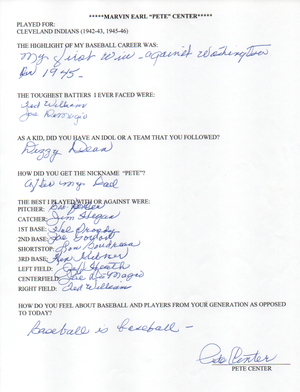 *****MARVIN EARL "PETE" CENTER*****
PLAYED FOR:
CLEVELAND INDIANS (1942-43, 1945-46)
THE HIGHLIGHT OF MY BASEBALL CAREER WAS:
My first win - against Washington
in 1945.
THE TOUGHEST BATTERS I EVER FACED WERE:
Ted Williams
Joe DiMagio
AS A KID, DID YOU HAVE AN IDOL OR A TEAM THAT YOU FOLLOWED?
Dizzy Dean
HOW DID YOU GET THE NICKNAME "PETE"?
After my Dad
THE BEST I PLAYED WITH OR AGAINST WERE:
PITCHER:
CATCHER: Jim Hegan
1ST BASE:
2ND BASE: Joe Gordon
SHORTSTOP: Lou Boudreau
3RD BASE: Ken Keltner
LEFT FIELD: Jeff Heath
CENTERFIELD: Joe DiMagio
RIGHT FIELD: Ted Williams
HOW DO YOU FEEL ABOUT BASEBALL AND PLAYERS FROM YOUR GENERATION AS OPPOSED
TO TODAY?
Baseball is baseball -
Pete Center
PETE CENTER